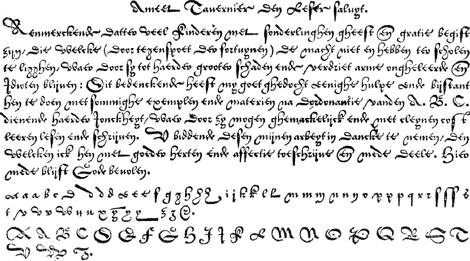 Ameet Tavernier den Leser saluyt.
Aenmerckende datter veel kinderen met sonderlinghen gheest ende gratie begift
zijn, die welcke (door teghenspoet der fortuynen) de macht niet en hebben ter scholen
te ligghen, waer door sy tot haerder grooter schaden ende verdriet arme ongheleerde ende
Idioten blijven: Dit bedenckende heeft my goet ghedocht eenighe hulpe ende bijstant
hen te doen met sommighe exemplen ende materien na doordonantie vanden A. B. C.
dienende haerder Jonckheyt, waer door sy moghen ghemackelijck ende met cleynen cost
leeren lesen ende schrijven. V biddende desen mijnen arbeyt in dancke te nemen, den
welcken ick hen met goeder herten ende affectie toeschrijve ende mede deele. Hier
mede blijft Gode bevolen.
a a a b c d d d d e e e f g g h h i i j k k l l m m m n n y o p p p q r r s s s s
t v v v w u u x y y z z.
A A B C D E F G H I J K L M N O P Q R S T
V W Y Z.